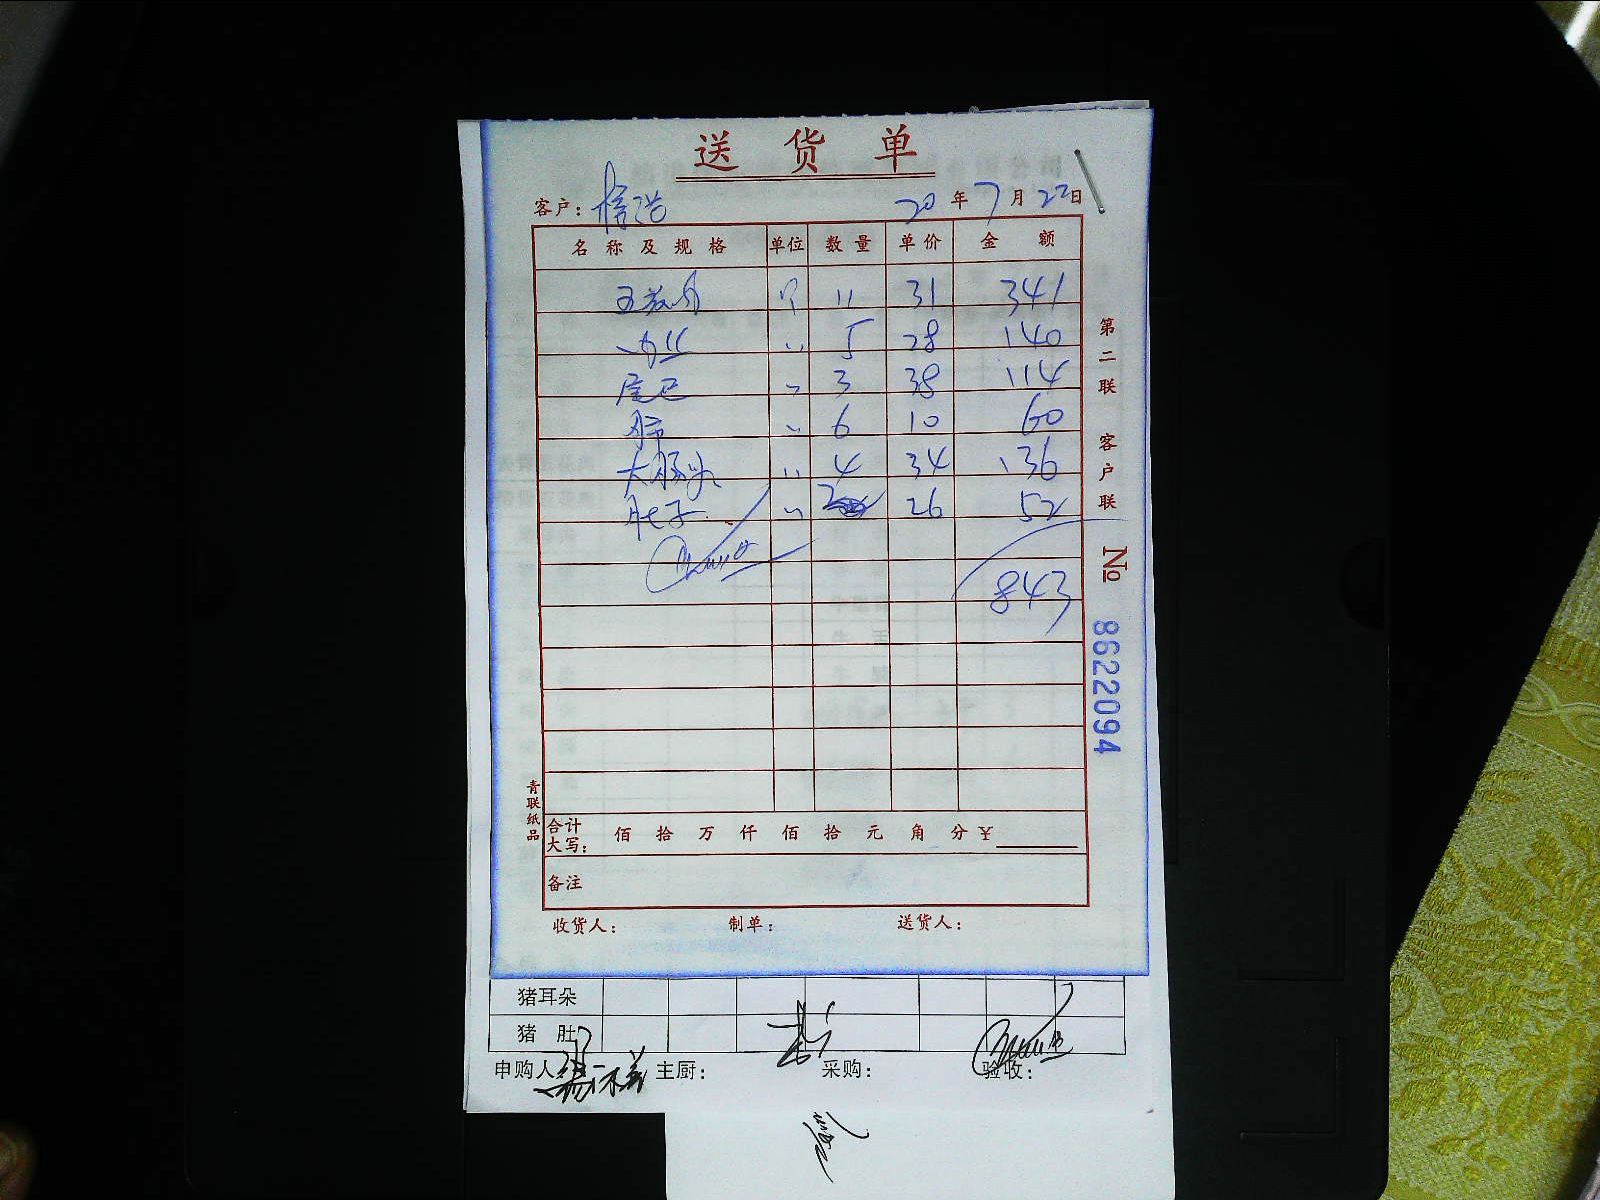 送 货 单
客户： 20 年 7 月 22 日
名 称 及 规 格 单位 数 量 单 价 金 额
五花肉 斤 11 31 341
〃 5 28 140
尾巴 〃 3 38 114
肺 〃 6 10 60
大肠头 〃 4 34 136
肚子 〃 2 26 52
843
合计大写： 佰 拾 万 仟 佰 拾 元 角 分 ￥
备注
收货人： 制单： 送货人：
第二联 客户联
№ 8622094
青联纸品
猪耳朵
猪 肚
申购人 主厨： 采购： 验收：